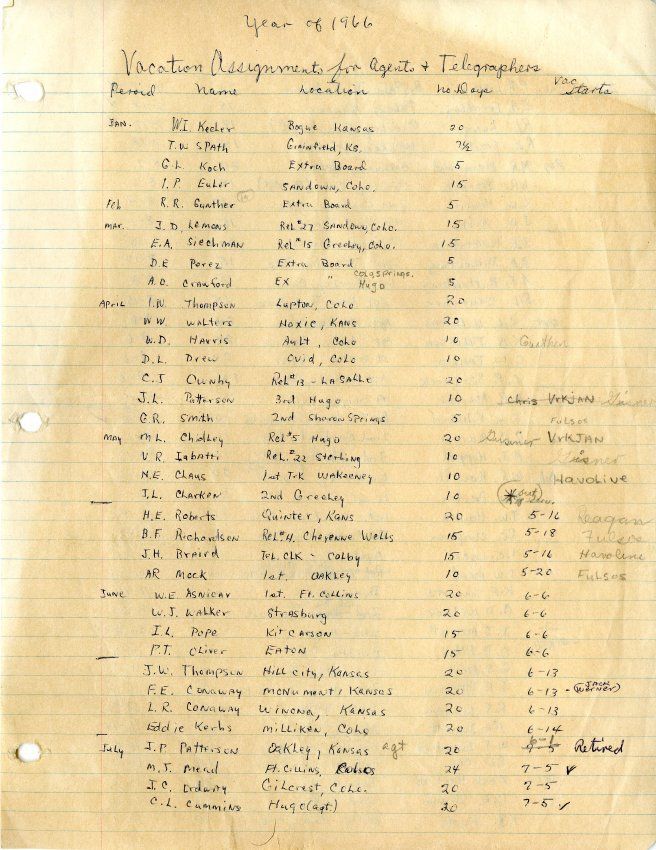 Year of 1966
Vacation Assignments for Agents + Telegraphers
Peroid Name Location No. Days Vac Starts
JAN. W.I. Keeler Bogue Kansas 20
T.W SPath Grainfield, Ks. 7½
G.L. Koch Extra Board 5
I.P. Euler SANDOWN, Colo. 15
Feb R.R. Gunther Extra Board 5
MAR. J.D. Lemons Rel #27 Sandown, Colo. 15
E.A. Siechman Rel #15 Greeley, Colo. 15
D.E Perez Extra Board 5
A.D. Crawford Ex " Colo Springs. Hugo 5
April I.W. Thompson Lupton, Colo 20
W.W. Walters Hoxie, Kans 20
W.D. Harris Ault, Colo 10 Gunther
D.L. Drew Ovid, Colo 10
C.J Ownby Rel #13 - LASAlle 20
J.L. Patterson 3rd Hugo 10 Chris VrKJAN Gisner
G.R. Smith 2nd Sharon Springs 5 Fulsos
MAY M.L. Chidley Rel #5 Hugo 20 Gisner VrKJAN
V R. Igbatti Rel. #22 Sterling 10 Gisner
N.E. Claus 1st Trk WAKeeney 10 Havolive
J.L. Charken 2nd Greeley 10 * out of Serv.
H.E. Roberts Quinter, Kans 20 5-16 Reagan
B.F Richardson Rel #4. Cheyenne Wells 15 5-18 Fulsos
J.H. Braird Tel. CLK - Colby 15 5-16 Havoline
AR Mock 1st. OAKley 10 5-20 Fulsos
June W.E Asnicar 1st. Ft. Collins 20 6-6
W.J. Walker Strasburg 20 6-6
I.L. Pope Kit Carson 15 6-6
P.T. Oliver EATON 15 6-6
J.W. Thompson Hill City, Kansas 20 6-13
F.E. Conaway Monument, Kansas 20 6-13 - (JACK Werner)
L.R. Conaway Winona, Kansas 20 6-13
Eddie Kerbs Milliken, Colo 20 6-14
July J.P. Patterson Oakley, Kansas agt 20 6-6 7-5 Retired
M.J. Mead Ft. Collins, Colo 24 7-5 ✓
J.C. Ordway Gilcrest, Colo. 20 7-5
C.L. Cummins Hugo (agt.) 20 7-5 ✓